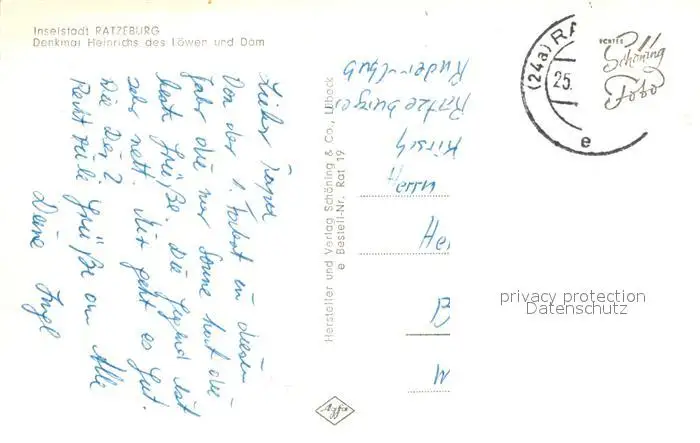 Inselstadt RATZEBURG
Denkmal Heinrichs des Löwen und Dom
Lieber Papa
Von der 1. Fahrt in diesem
Jahr die nur Sonne hat die
besten Grüße. Die Gegend ist
sehr nett. Mir geht es gut.
Die Dir?
Recht viele Grüße an Alle
Deine Inge
Hersteller und Verlag Schöning & Co., Lübeck
e Bestell-Nr. Rat 19
Agfa
Ruderclub
Ratzeburger
Kirsch
Herrn
He
B
W
(24a) RA
25.
e
ECHTES
Schöning
Foto
privacy protection
Datenschutz